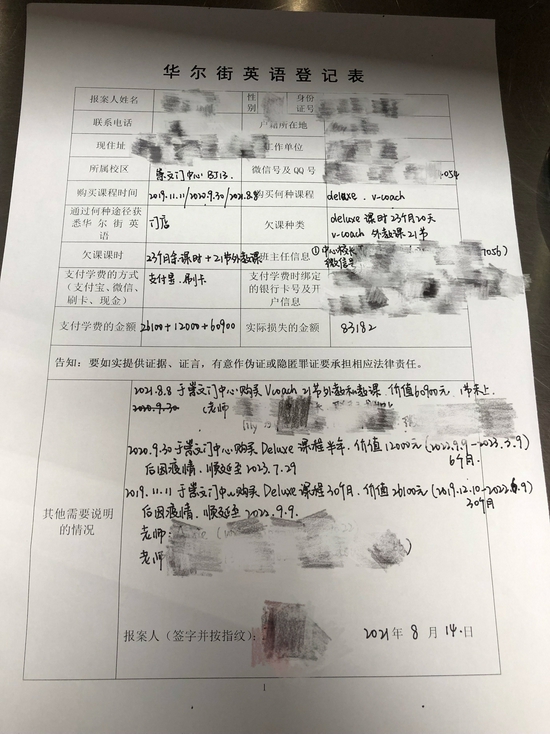 华尔街英语登记表
报案人姓名 性别 身份证号
联系电话 户籍所在地
现住址 工作单位
所属校区 崇文门中心 BJ13 微信号及QQ号 054
购买课程时间 2019.11.11/2020.9.30/2021.8.8 购买何种课程 deluxe、v-coach
通过何种途径获悉华尔街英语 门店 欠课种类 deluxe课时23个月20天
v-coach外教课21节
欠课课时 23个月余课时+21节外教课 班主任信息 ①中心校长
微信号 7056)
支付学费的方式(支付宝、微信、刷卡、现金) 支付宝、刷卡 支付学费时绑定的银行卡号及开户信息
支付学费的金额 26100+12000+60900 实际损失的金额 83182
告知:要如实提供证据、证言,有意作伪证或隐匿罪证要承担相应法律责任。
其他需要说明的情况
2021.8.8于崇文门中心购买Vcoach 21节外教私教课,价值60900元,1节未上
2020.9.30 (老师
2020.9.30于崇文门中心购买Deluxe课程半年,价值12000元(2022.9.9-2023.3.9)
6个月.
后因疫情,顺延至2023.7.29
2019.11.11于崇文门中心购买Deluxe课程30个月,价值26100元(2019.12.10-2022.6.9)
30个月
后因疫情,顺延至2022.9.9.
老师:
老师
报案人(签字并按指纹): 2021年8月14日
1